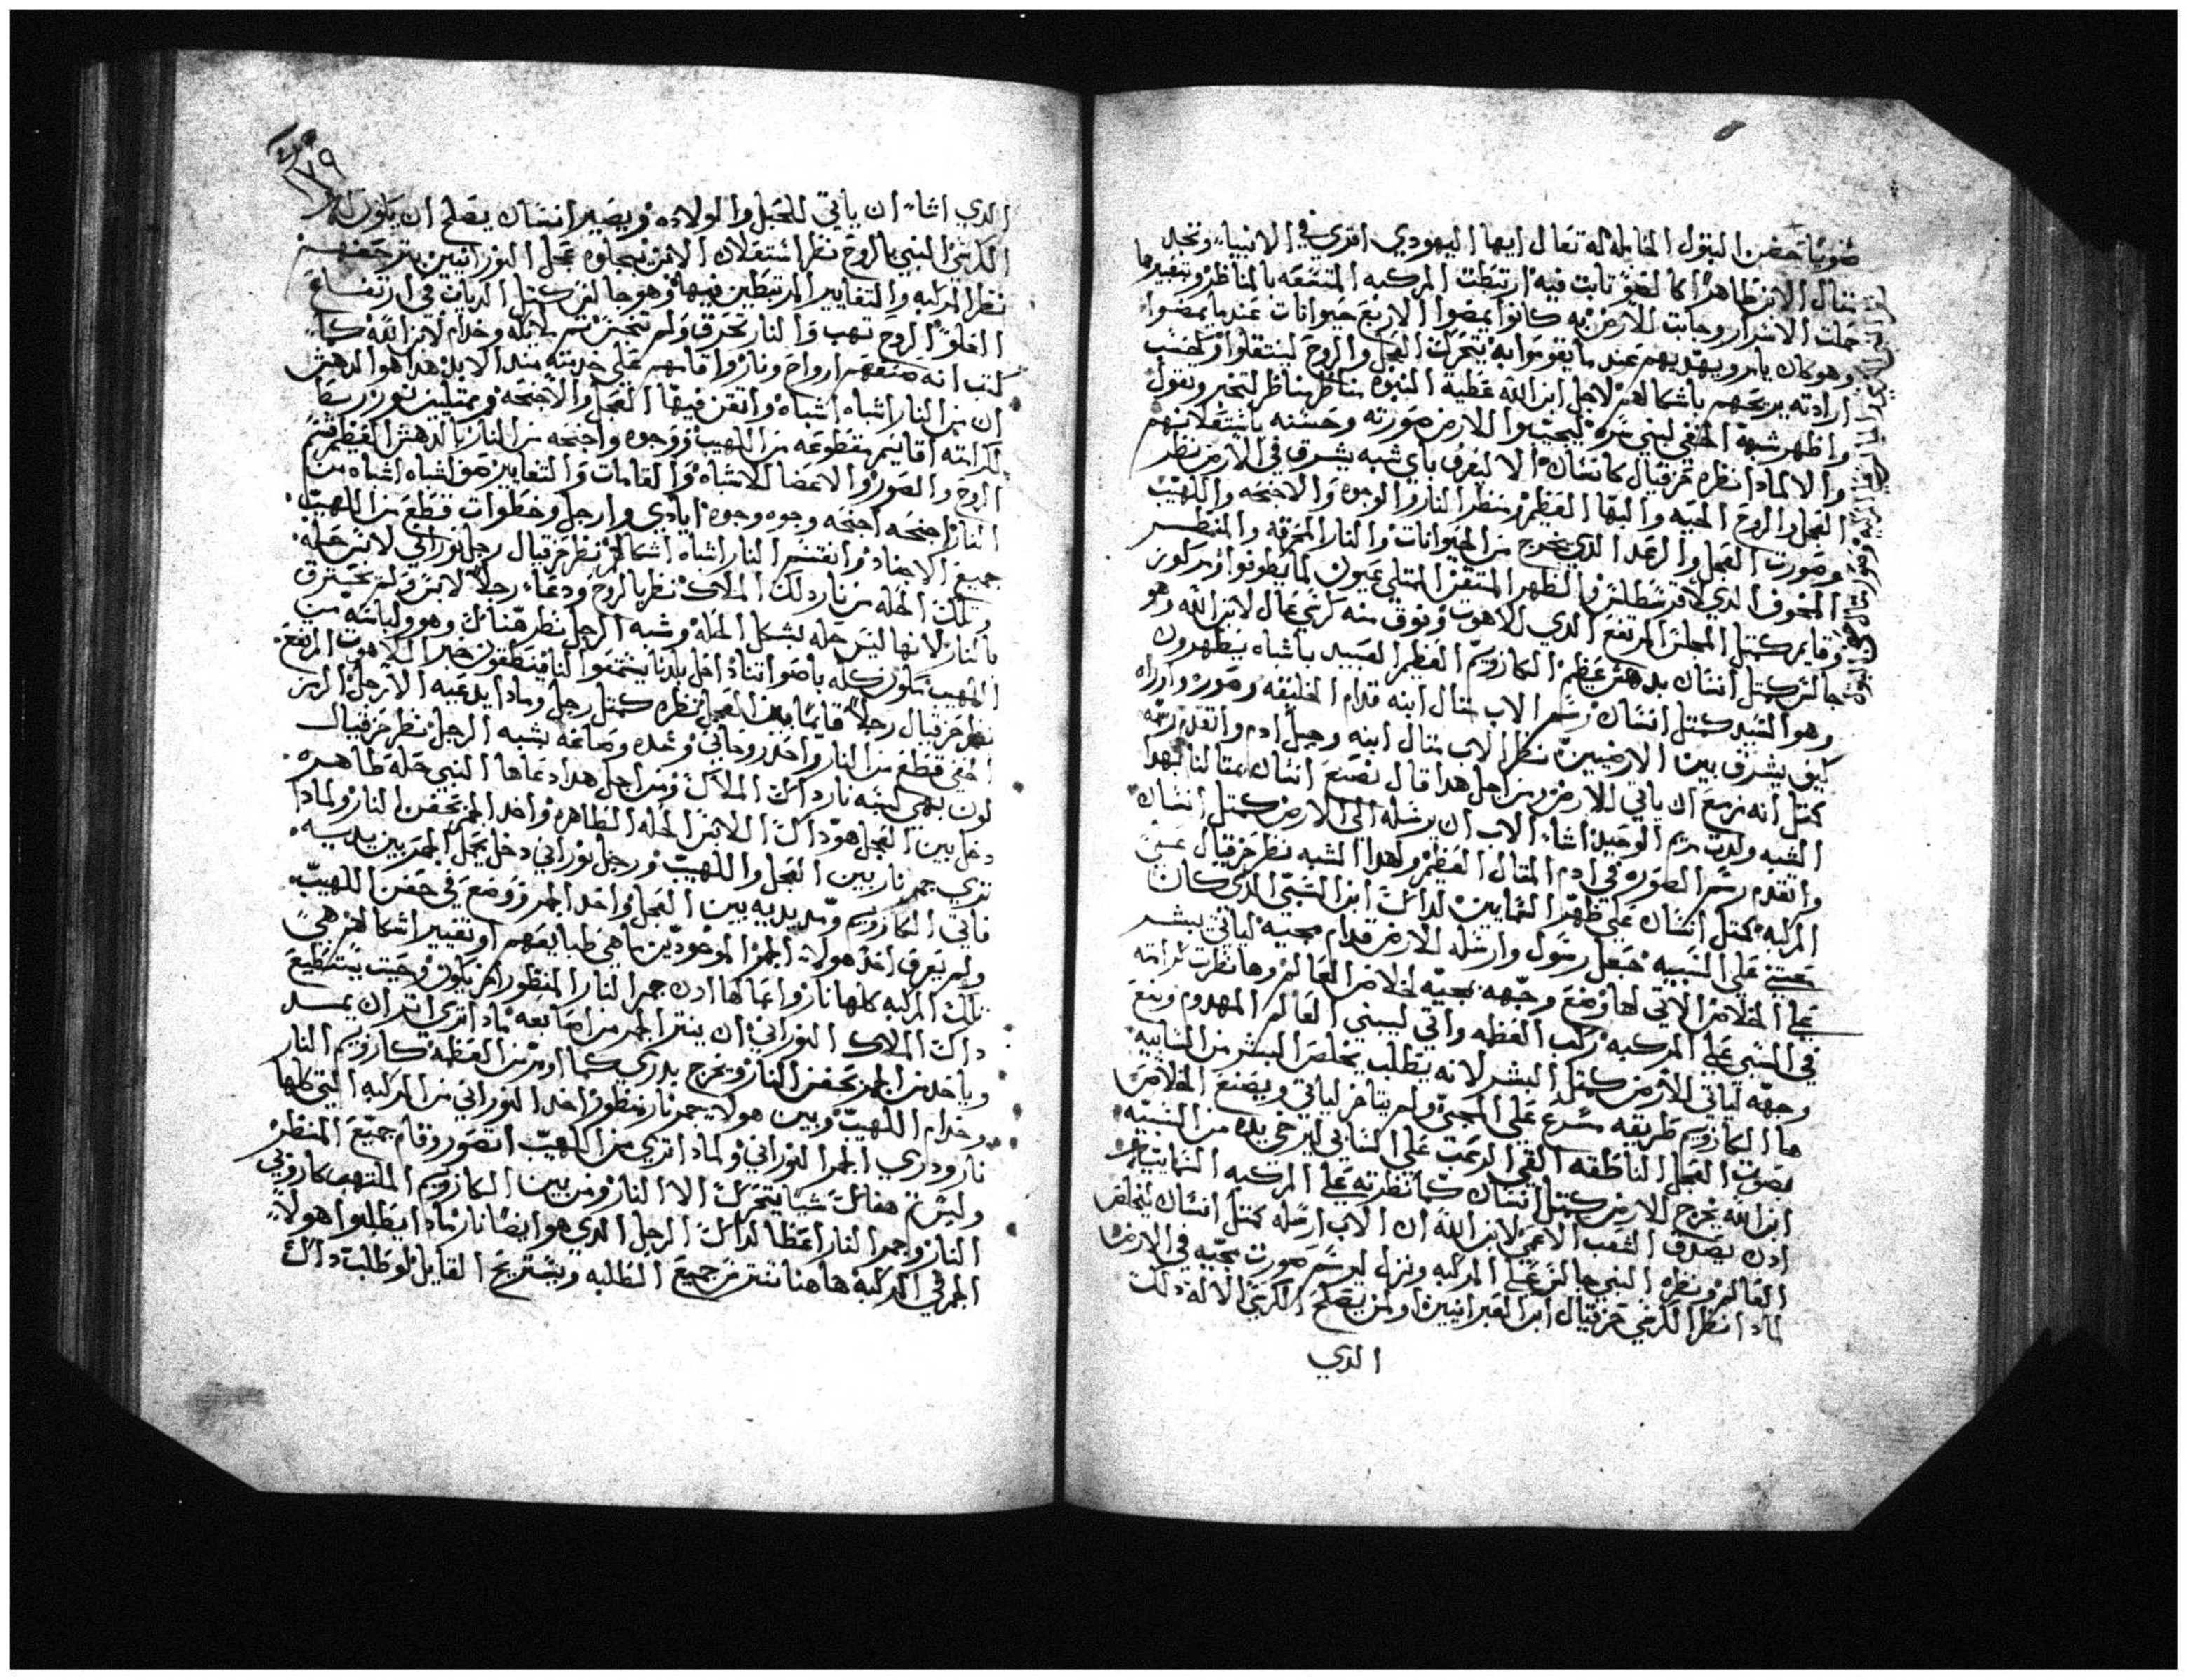 ضويا حضن البتول الحامله له تعال ايها اليهودي اقري في الانبياء وتجد
تتال الابن ظاهرا كالضو تابت فيه ارتبطت المركبه المتسعه بالمناظر وبتغييرها
حملت الاسرار وجابت للارض به كانوا يمضوا الاربع حيوانات عندما يمضوا
وهو كان يامر ويهديهم عند ما يقوموا به يتحرك العجل والروح لينتقلوا وكحسب
ارادته يريحهم باشكالهم لاجل ابن الله عطيه النبوه مناظر مناظر لتخبر وتقول
واظهر شبهه الخفي لبني مره ليحبوا للارض صورته وحسنه باشتعلانهم
والا لمادا نظره حزقيال كانسان الا ليعرف باي شبه يشرق في الارض نظر
العجل والروح الحيه والبها العظيم منظر النار والوجوه والاجنحه واللهيب
وصورت العجل والرعد الدي يخرج من الحيوانات والنار المحرقه والمنظر
المخوف الدي لا قرسطلس والظهر المتقن الممتلي عيون لما يطوفوا
وقايم كمتل المجلس المرتفع الدي للاهوت وفوق منه كرسي عال لابن الله وهو
جالس كمتل انسان بدهش عظيم الكاروبيم العظيم العبيد باشباه يظهرون
وهو السيد كمتل انسان رسم الاب متال ابنه قدام الخليقه وصوره واراه
كيف يشرق بين الارضيين نظر الاب متال ابنه وجبل ادم واتقدم رسمه
كمتل انه مزمع ان ياتي للارض ومن اجل هدا قال نصنع انسان بمتالنا لهدا
الشبه ولدت مريم الوحيد اشاء الاب ان يرسله الى الارض كمتل انسان
واتقدم رسم الصوره في ادم المتال العظيم ولهدا الشبه نظر حزقيال عين
المركبه كمتل انسان على ظهر التمايين لداك ابن السبي الدي كان
على السبيه جعل رسول وارسله للارض قدام مجيه لياتي يبشر
على الخلاص الاتي لها وضع وجهه بمجيه لخلاص العالم وها نظرت كرامته
في السبي على المركبه ركب العظمه واتي ليبني العالم المهدوم وضع
وجهه لياتي للارض كمتل البشر لانه يتطلب يخلص البشر من السابيه
ها الكاروبيم طريقه مسرع على المجي ولم يتاخر لياتي ويصنع الخلاص
بصوت العجل الناطقه القي الرعب على السابي ليرخي يده من السبيه
ابن الله يخرج للارض كمتل انسان كما نظرته على المركبه السمايه
ادن يصدق الشعب الاعمى لابن الله ان الاب ارسله كمتل انسان ليخلص
العالم ونظره النبي جالس على المركبه ونزل ليرسم صورت مجيه في الارض
لمادا نظر الكرسي حزقيال ابن العبرانيين اولم يصلح الكرسي الا له دلك
الدي
١٧٩
الدي اشاء ان ياتي للحبل والولاده ويصير انسان يصلح ان يكون له
الكرسي النبي بالروح نظر استعلان الابن يجلوه عجل النورانيين بترجفهم
نظر المركبه والتغايير المرتبطين فيها وهو جالس كمتل الديان في ارتفاع
العلو الروح تهب والنار تحرق ولم تحس تم ملايكه وخدام لابن الله كما
كتب انه صنعهم ارواح ونار واقامهم على خدمته مند الابد هدا هو الدهش
ان من النار اشباه اشباه واتقن فيها العجل والاجنحه وبمتلين نور ركبا
لكرامته اقانيم متطوعه من اللهيب ووجوه واجنحه من النار بالدهش العظيم
الروح والصور والاعضا للاشباه والقامات والتغايير صف اشباه اشباه من
النار اجنحه اجنحه وجوه وجوه ايادي وارجل وخطوات قطع من اللهيب
جميع الاجناد وانقسم النار اشباه اشكالهم نظر حزقيال رجل نوراني لابس حله
وتلك الحله من نار دلك الملاك نظر بالروح ودعاء رجلا لابس ولم يحترق
بالنار لانها ليس حله بشكل الحله وشبه الرجل نظر هناك وهو ولباسه من
اللهيب تكون كله باصواتنا اهل بلدنا يسمعوا لنا فينطقون خبر اللاهوت المرتفع
نظر حزقيال رجلا قايما بين العجل نظره كمتل رجل ومادا يدعيه الا رجل الرمز
اخفي قطع من النار واحد روحاني وعده وصانعه بشبه الرجل نظر حزقيال
لون بهي لبسه نار داك الملاك ومن اجل هدا دعاها النبي حله طاهره
دخل بين العجل هو داك اللابس الحله الطاهره واخد الجمر بحفن النار ولمادا
تري جمر نار بين العجل واللهيب ورجل نوراني دخل يحمل الجمر بين يديه
فاتي الكاروبيم ومد يديه بين العجل واخد الجمر ووضع في حفن اللهيب
ولم يعرف احد هولاء الجمر الموجودين ما هي طبايعهم او تغيير اشكالهم هي
تلك المركبه كلها نار واعمالها ادن جمر النار المنظور اين يكون وحيت يستطيع
داك الملاك النوراني ان ينتر الجمر من اصابعه مادا تري اتر ان يمسد
وياخد من الجمر بحفن النار ويخرج يدري كما اومر من العظمه كاروبيم النار
وخدام اللهيب وبين هولاء جمر نار منظور اخد النوراني من المركبه التي كلها
نار ودري الجمر النوراني ولمادا تري من اللهيب اتصور وقام جميع المنظر
وليس تم هناك شيا يتحرك الا النار ومن بين الكاروبيم الملتهب كاروبي
النار وجمر النار اعطا لداك الرجل الدي هو ايضا نار مادا يطلبوا هولاء
الجمر في المركبه هاهنا تفتر من جميع الطلبه ويستريح القايل لو طلبت داك